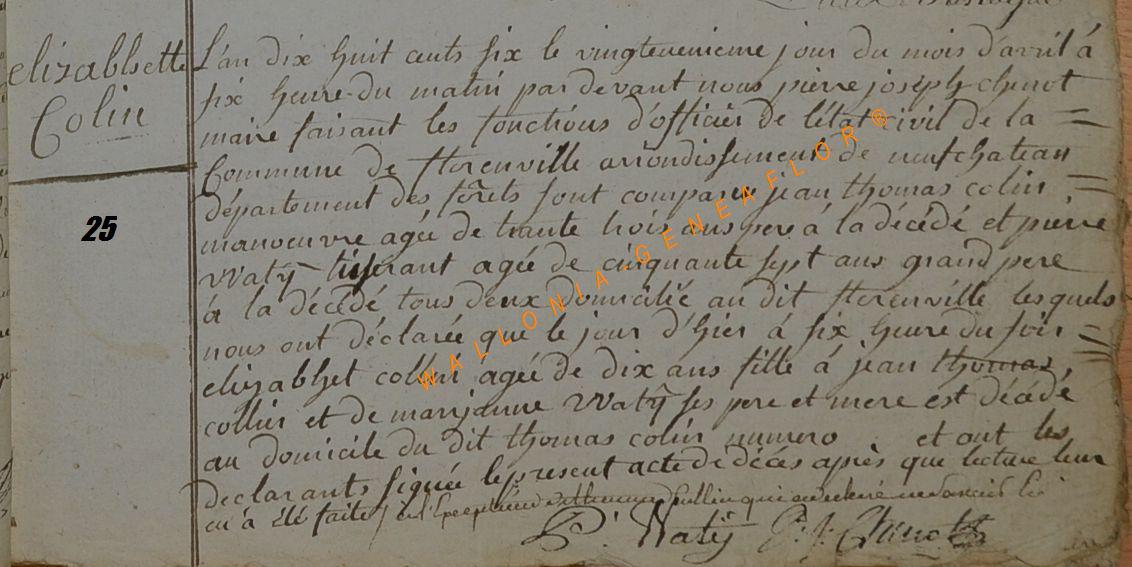 elizabhette
Colin
25
L'an dix huit cents six le vingteunieme jour du mois d'avril à
six heure du matin par devant nous pierre joseph chinot
maire faisant les fonctions d'officier de l'état civil de la =
Commune de florenville arrondissement de neufchateau
département des forêts sont comparu jean thomas colin =
manoeuvre agée de trante trois ans pere à la décédé et pierre
Watÿ tisserant agée de cinquante sept ans grand pere
à la décédé tous deux domicilié au dit florenville lesquels
nous ont déclarée que le jour d'hier à six heure du soir =
elizabhet colin agée de dix ans fille à jean thomas =
collin et de marjanne Watÿ ses pere et mere est décédé
au domicile du dit thomas colin numero . et ont les
declarants signée le present acte de décès après que lecture leur
en a été faite
P. Watÿ P. J. Chinot
WALLONIA-GENEAFLOR®